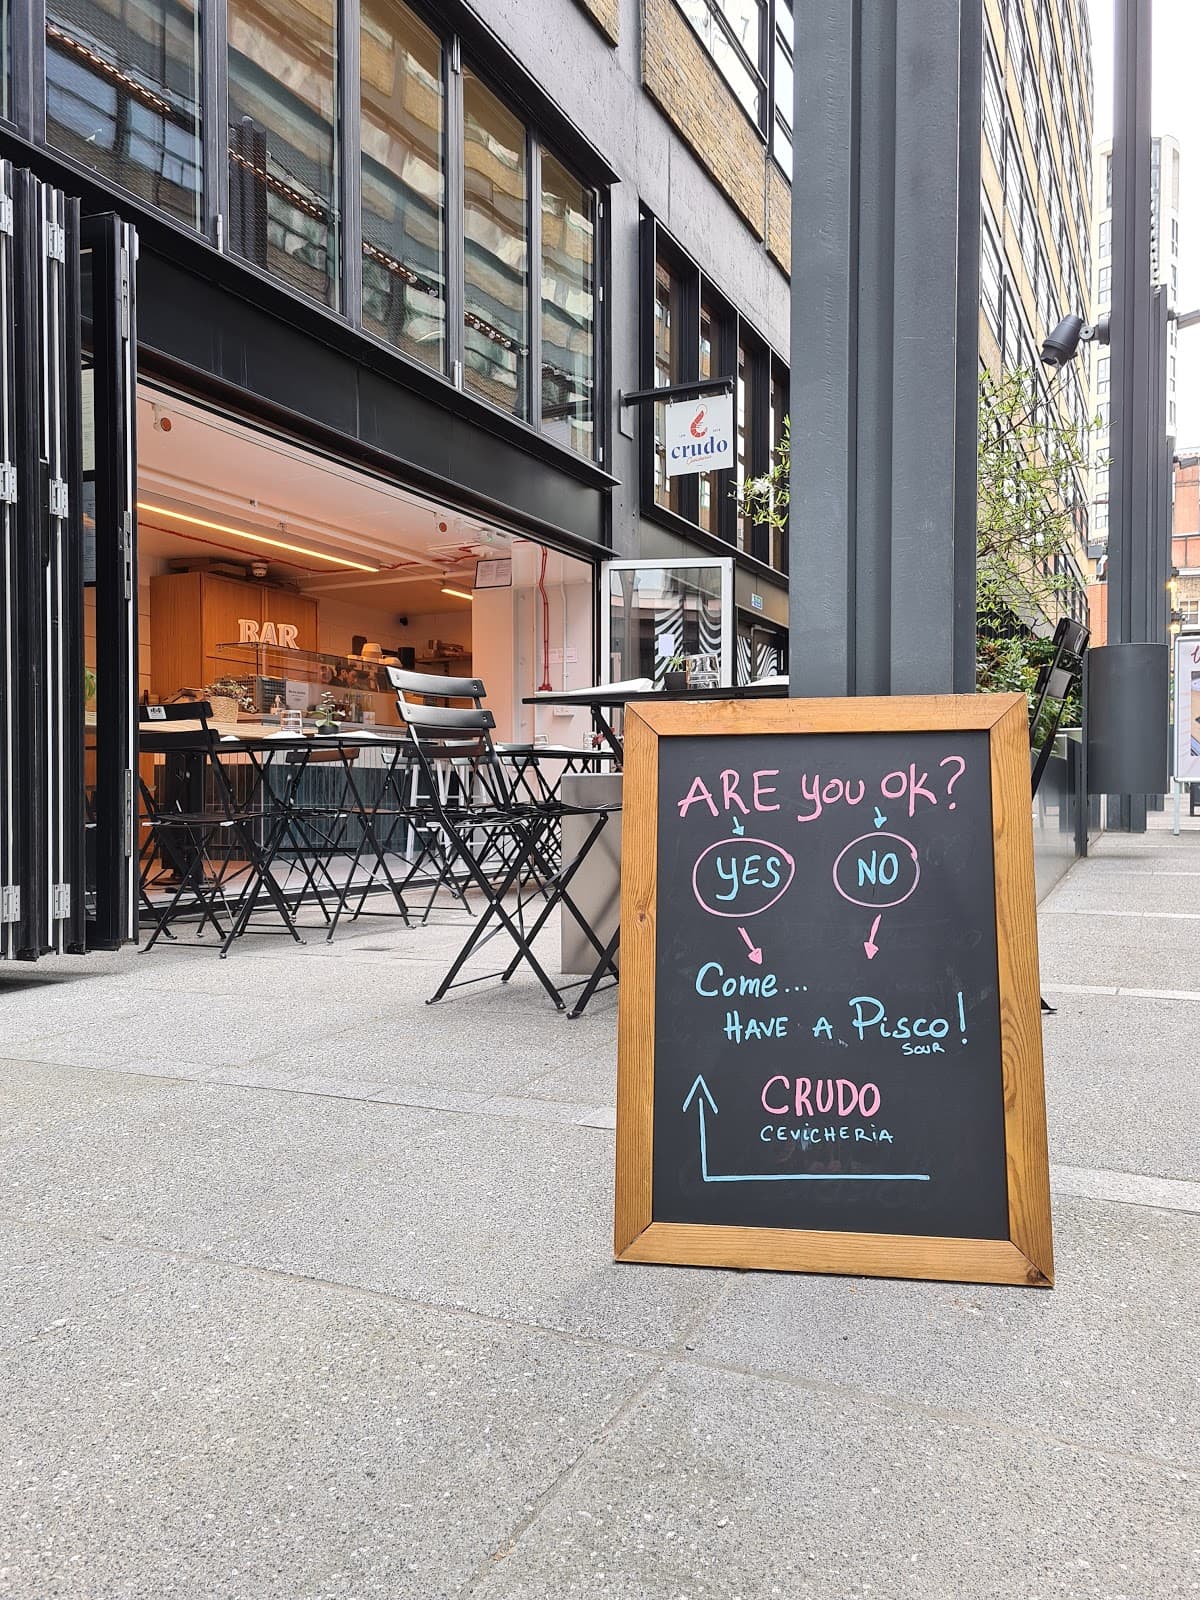 BAR
crudo
Cevicheria
ARE you OK?
YES NO
Come...
HAVE A Pisco!
SOUR
CRUDO
CEViCHERIA